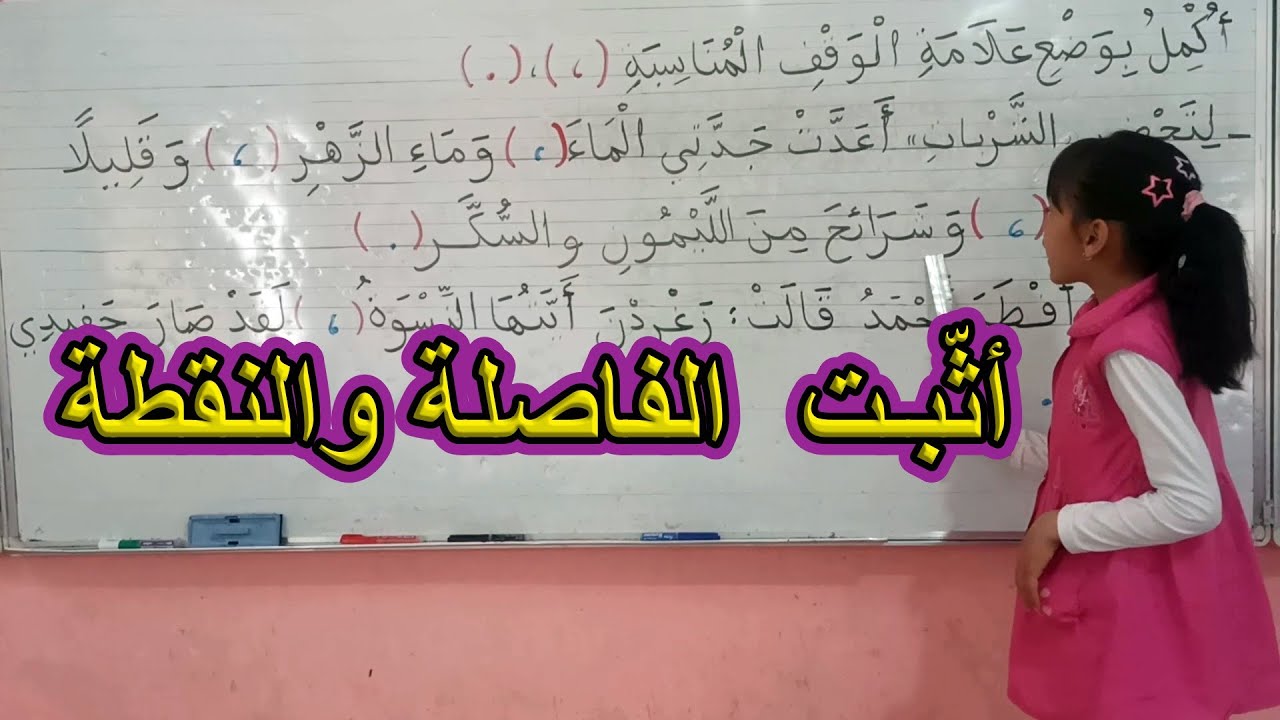 أُكْمِلُ بِوَضْعِ عَلَامَةِ الْوَقْفِ الْمُنَاسِبَةِ (،)،(.)
ـ لِتَحْضِيرِ الشَّرْبَاتِ» أَعَدَّتْ جَدَّتِي الْمَاءَ (،) وَمَاءِ الزَّهْرِ (،) وَقَلِيلًا
(،) وَشَرَائِحَ مِنَ اللَّيْمُونِ والسُّكَّر (.)
أَفْطَرَ أَحْمَدُ قَالَتْ: زَغْرِدْنَ أَيَّتُهَا النِّسْوَةُ (،) لَقَدْ صَارَ حَفِيدِي
أثّبت الفاصلة والنقطة